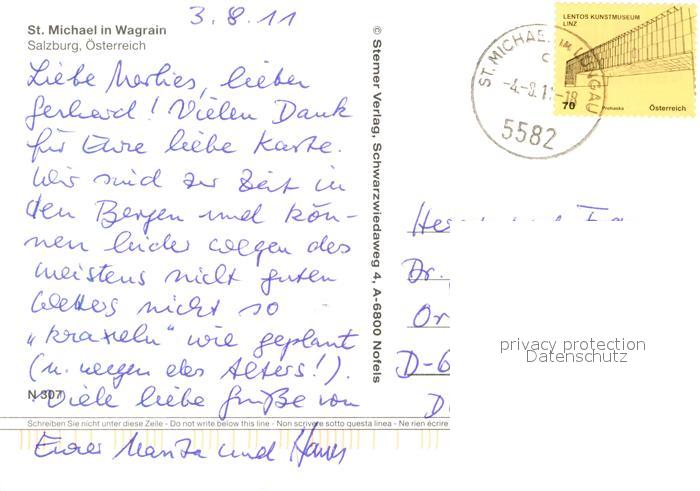 3.8.11
St. Michael in Wagrain
Salzburg, Österreich
Liebe Marlies, lieber
Gerhard! Vielen Dank
für Eure liebe Karte.
Wir sind zur Zeit in
den Bergen und kön-
nen leider wegen des
meistens nicht guten
Wetters nicht so
„kraxeln“ wie geplant
(u. wegen des Alters!).
N 307
Viele liebe Grüße von
Schreiben Sie nicht unter diese Zeile - Do not write below this line - Non scrivere sotto questa linea - Ne rien écrire
Eurer und Hans
© Sterner Verlag, Schwarzwiedaweg 4, A-6800 Nofels
LENTOS KUNSTMUSEUM
LINZ
70
Prohaska
Österreich
ST. MICHAEL IM LUNGAU
c
-4.-8.11-18
5582
Dr.
Or
D-6
D
privacy protection
Datenschutz